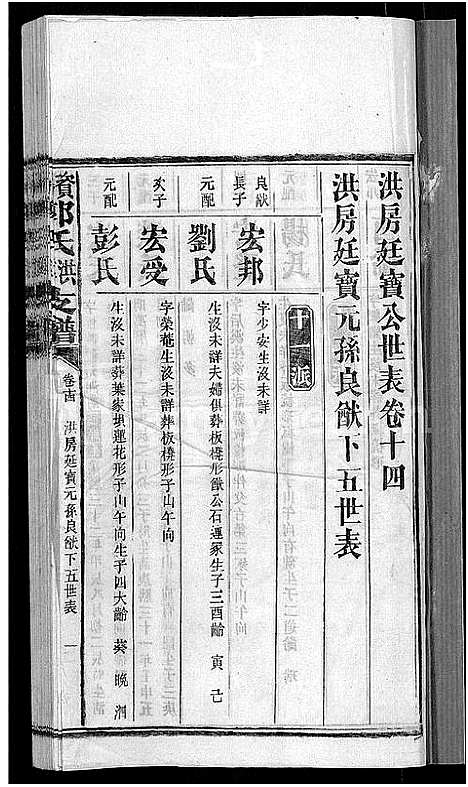 洪房廷寶公世表卷十四
洪房廷寶元孫良猷下五世表
十派
良猷長子
宏邦
字少安生沒未詳
元配
劉氏
生沒未詳夫婦俱葬板櫈形猷公石連冢生子三酉齡 寅 己
次子
宏受
字榮菴生沒未詳葬板櫈形子山午向
元配
彭氏
生沒未詳葬葉家垻蓮花形子山午向生子四大齡 葵 晚 泗
資鄧氏洪支譜
卷十四 洪房廷寶元孫良猷下五世表 一